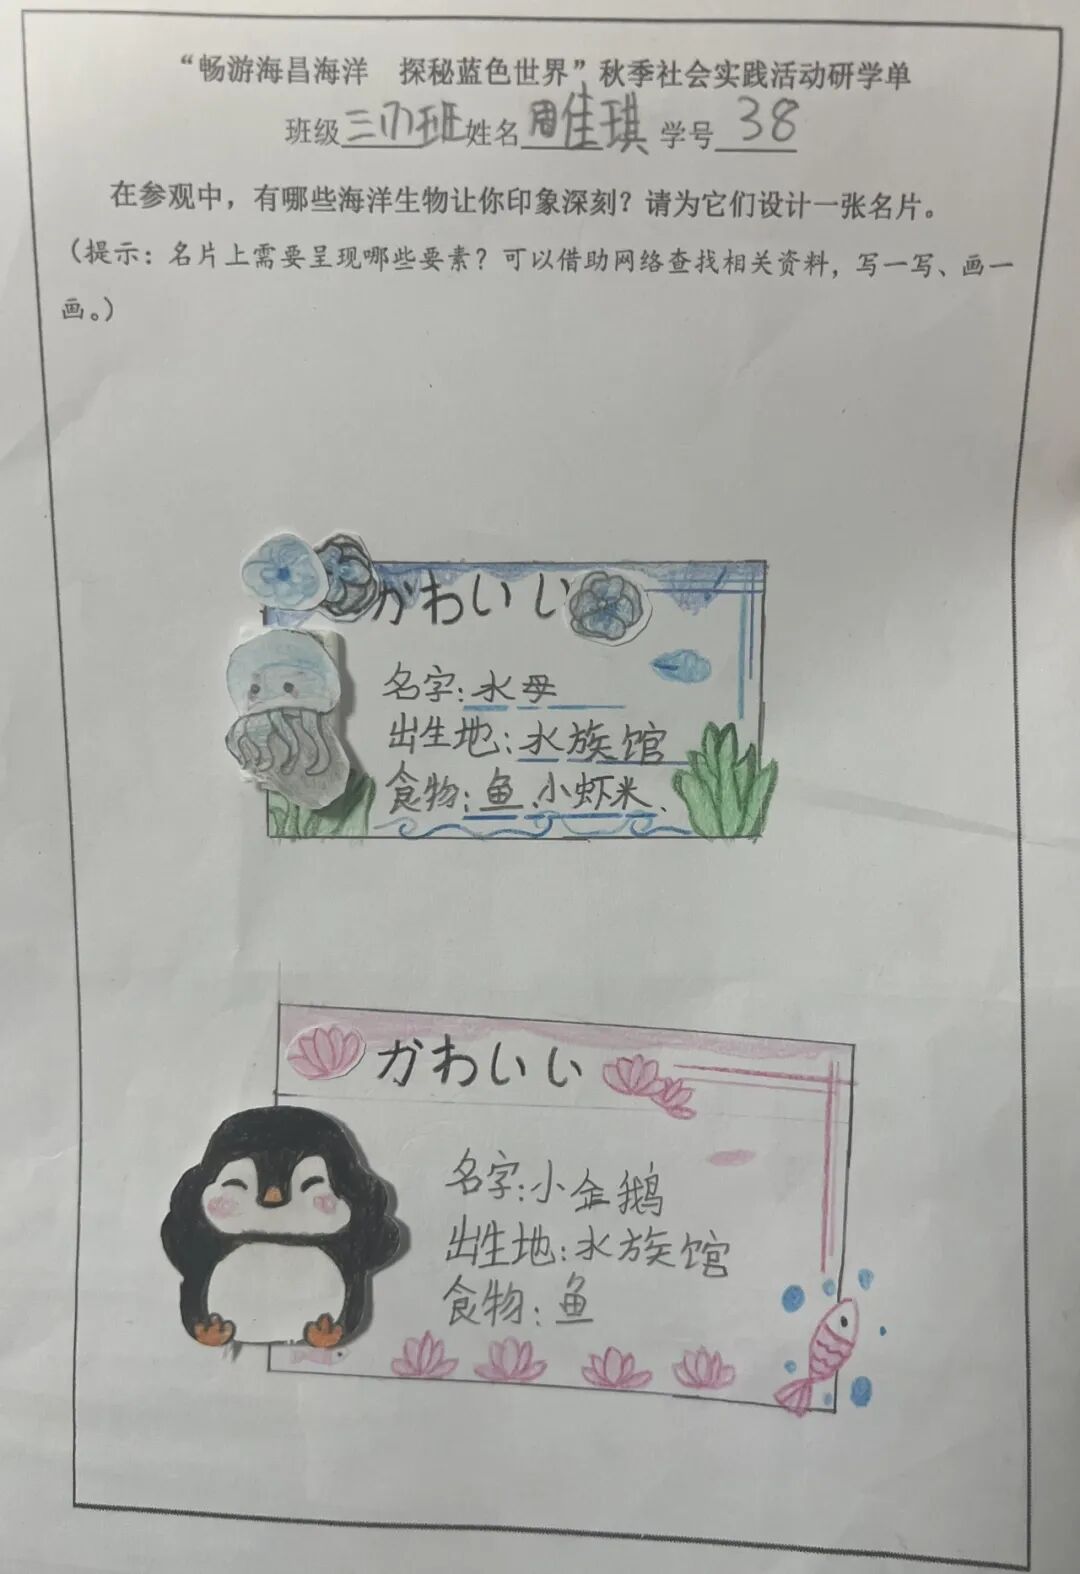 “畅游海昌海洋 探秘蓝色世界”秋季社会实践活动研学单
班级三(7)班姓名周佳琪 学号38
在参观中，有哪些海洋生物让你印象深刻？请为它们设计一张名片。
（提示：名片上需要呈现哪些要素？可以借助网络查找相关资料，写一写、画一
画。）
かわいい
名字：水母
出生地：水族馆
食物：鱼、小虾米、
かわいい
名字：小企鹅
出生地：水族馆
食物：鱼